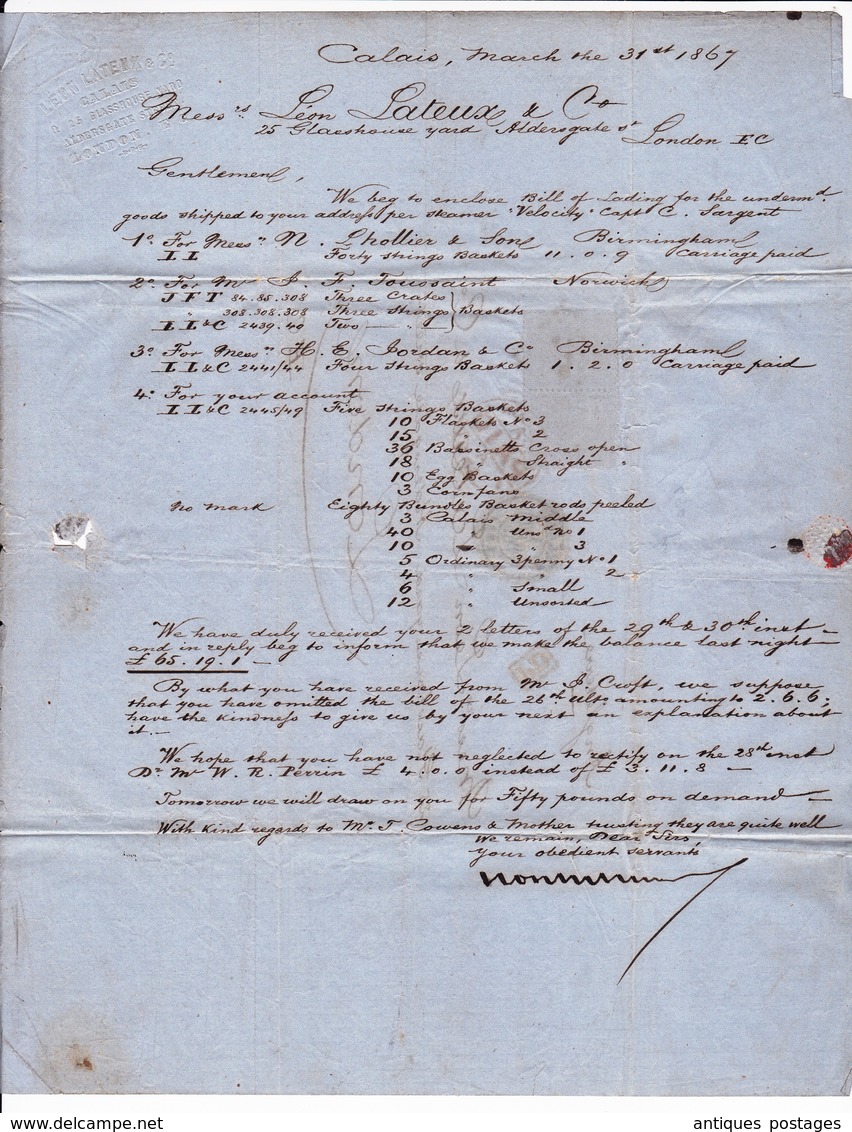 LÉON LATEUX & Co
CALAIS
& 25 GLASSHOUSE YARD
ALDERSGATE St
LONDON
Calais, March the 31st 1867
Messrs Léon Lateux & Co
25 Glasshouse yard Aldersgate st
London EC
Gentlemen,
We beg to enclose Bill of Lading for the undermd.
goods shipped to your address per steamer "Velocity" Capt C. Sargent
1o For Messrs N. Lhollier & Son Birmingham
LL Forty strings Baskets 11.0.9 Carriage paid
2o For Mr J. F. Toussaint Norwich
JFT 84.85.308 Three Crates
" 308.308.308 Three Strings } Baskets
LL&C 2439.40 Two — "
3o For Messrs H. E. Jordan & Co Birmingham
LL&C 2441/44 Four Strings Baskets 1.2.0 Carriage paid
4o For your account
LL&C 2445/49 Five Strings Baskets
10 Flaskets No 3
15 " 2
36 Bassinetts Cross open
18 " Straight "
10 Egg Baskets
3 Cornfans
No mark Eighty Bundles Basket rods peeled
3 Calais Middle
40 " Unsd No 1
10 " 3
5 Ordinary 3penny No 1
4 " " 2
6 " Small
12 " Unsorted
We have duly received your 2 letters of the 29th & 30th inst —
and in reply beg to inform that we make the balance last night
£ 65.19.1 —
By what you have received from Mr J. Croft, we suppose
that you have omitted the bill of the 26th ulto amounting to 2.6.6;
have the kindness to give us by your next an explanation about
it. —
We hope that you have not neglected to rectify on the 28th inst
Dr Mr W. R. Perrin £ 4.0.0 instead of £ 3.11.8 —
Tomorrow we will draw on you for Fifty pounds on demand —
With kind regards to Mr T. Cowens & Mother trusting they are quite well
We remain, Dear Sirs
Your obedient servants
antiques postages